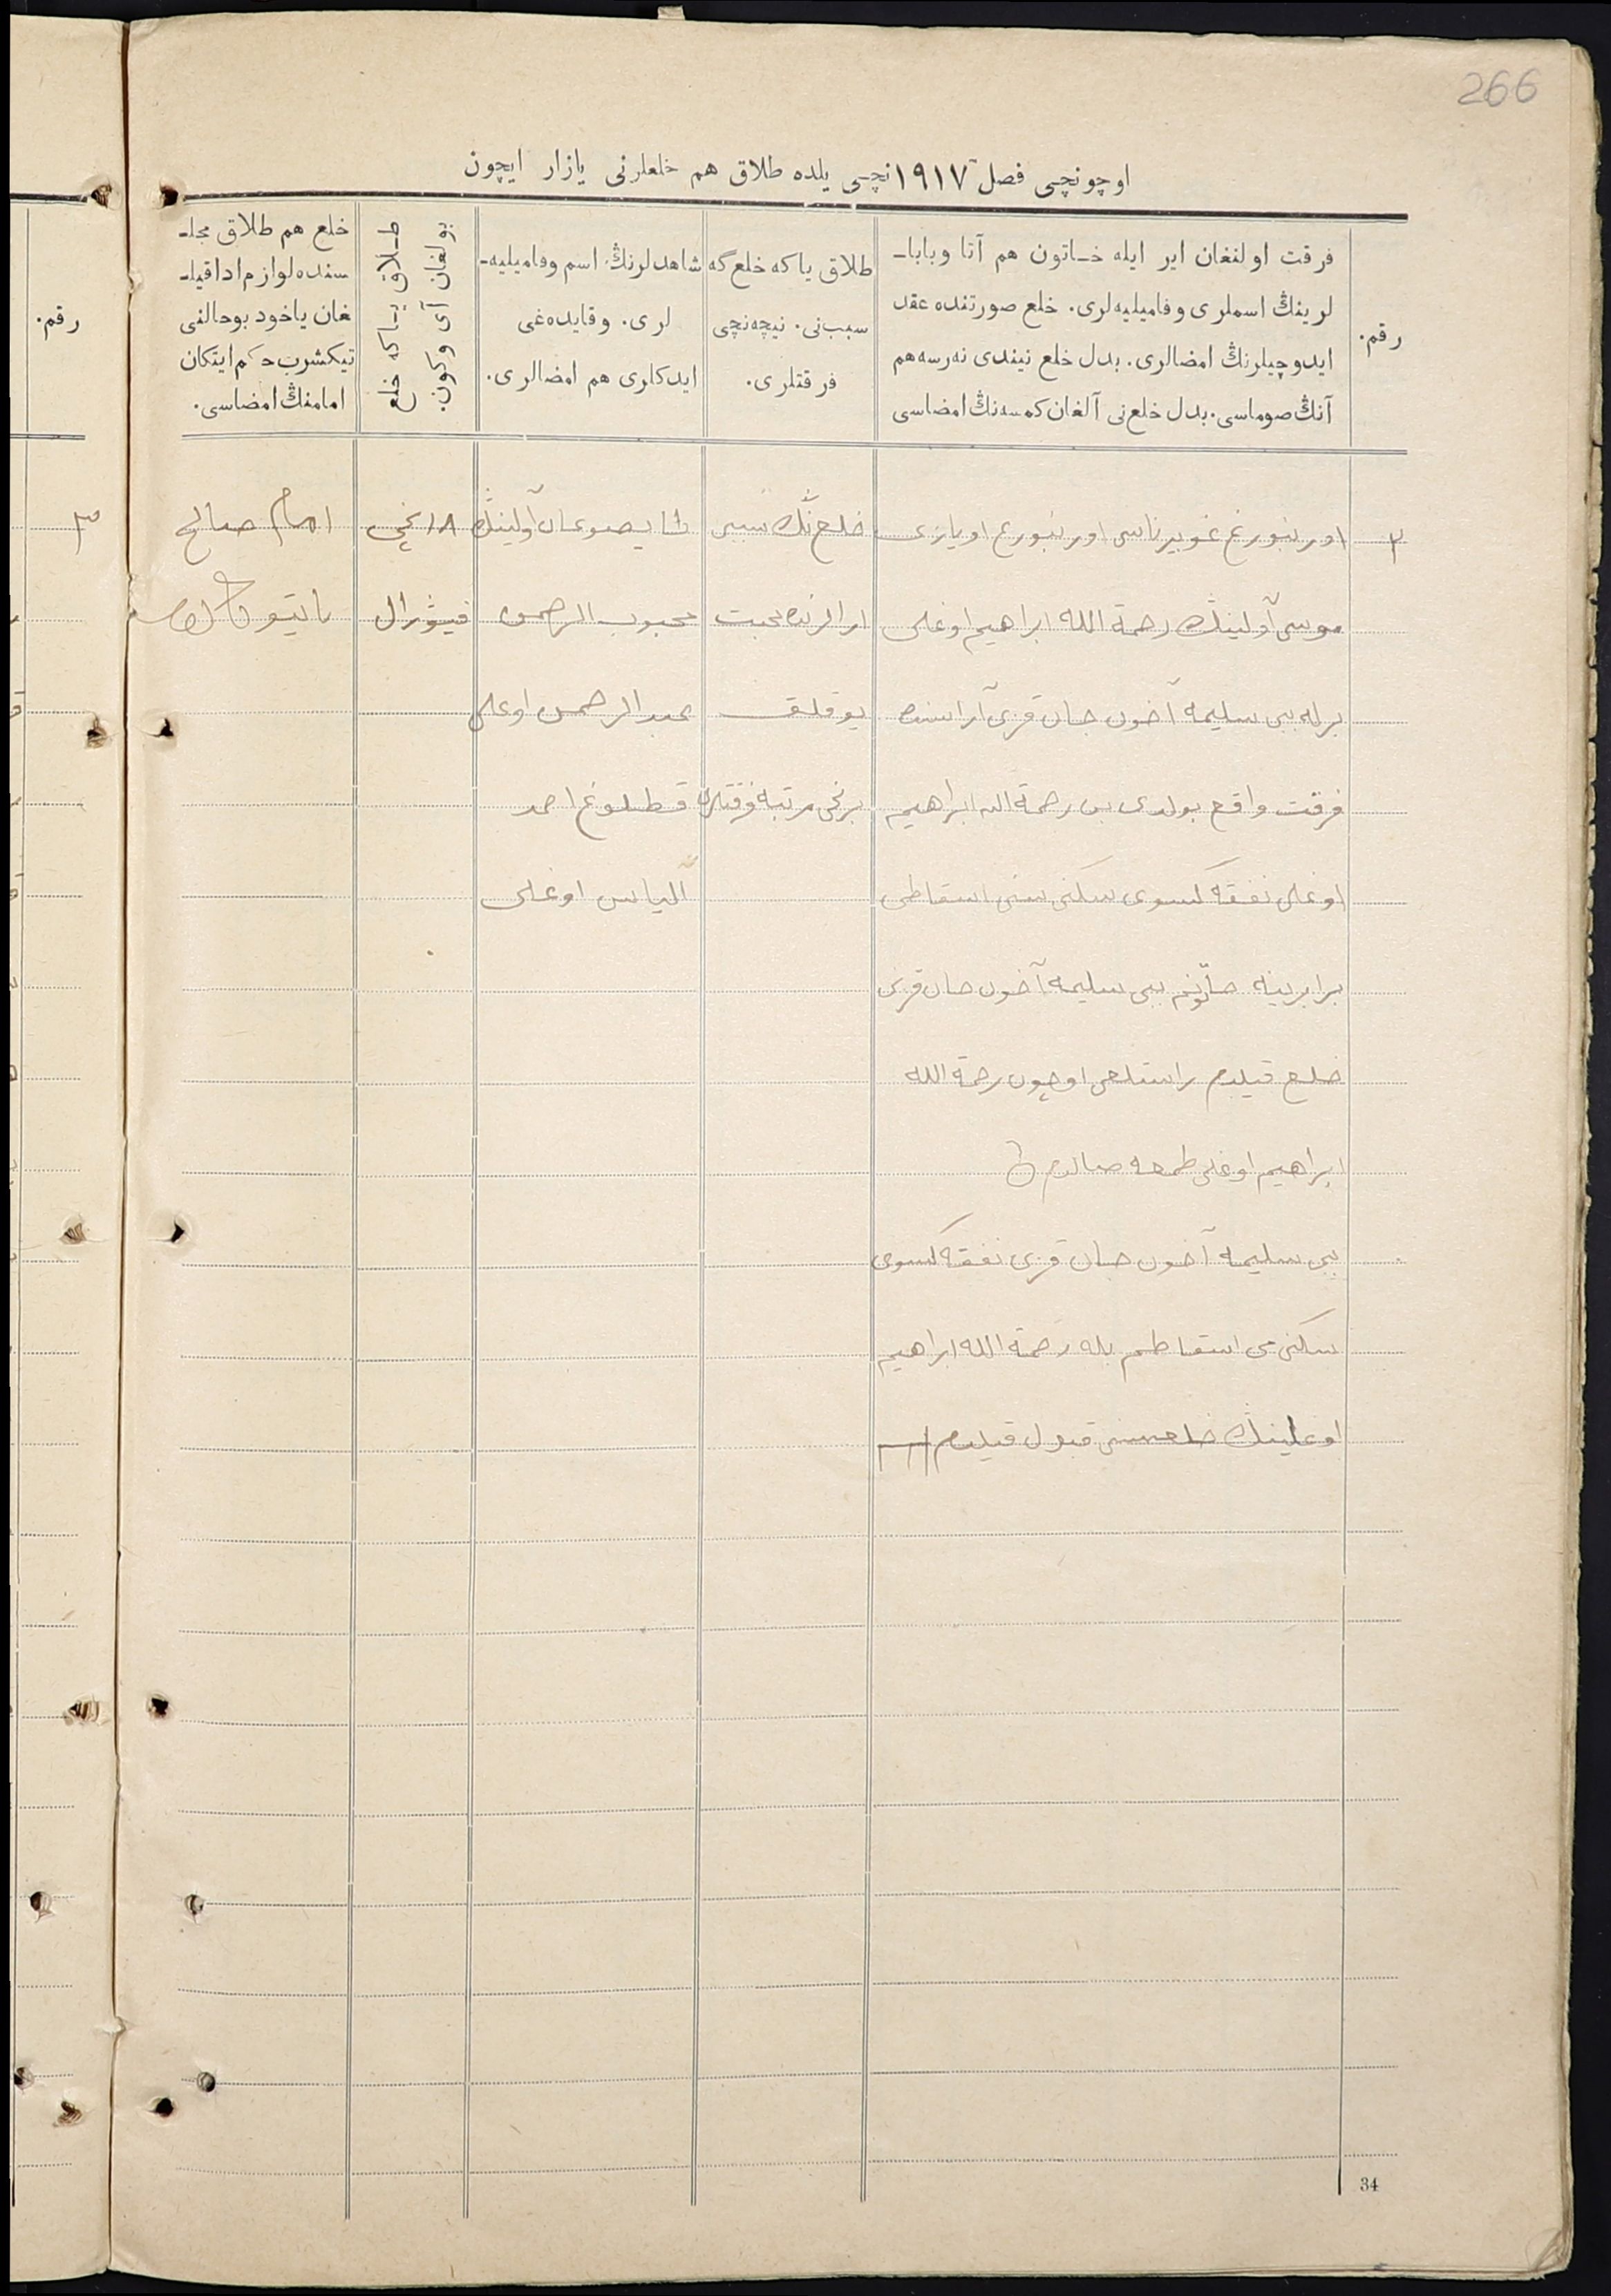 266
اوچونچى فصل ١٩١٧ نچى يلده طلاق هم خلعلرنى يازار ايچون
رقم.
فرقت اولنغان اير ايله خاتون هم آتا وبابا-
لرينڭ اسملرى وفاميليه‌لرى. خلع صورتنده عقد
ايدوچيلرنڭ امضالرى. بدل خلع نيندى نه‌رسه هم
آنڭ صوماسى. بدل خلع‌نى آلغان كمسه‌نڭ امضاسى
طلاق ياكه خلع گه
سبب‌نى. نيچه‌نچى
فرقتلرى.
شاهدلرنڭ اسم وفاميليه-
لرى. وقايده‌غى
ايدكلرى هم امضالرى.
طلاق ياكه خلع
بولغان آى وكون.
خلع هم طلاق مجلـ
سنده لوازم ادا قيلـ
غان ياخود بو حالنى
تيكشرب حكم ايتكان
امامنڭ امضاسى.
٢
اورنبورغ غوبيرناسى اورنبورغ اويازى
موسى آولينڭ رحمة الله ابراهيم اوغلى
برله بيبى سليمه آخون جان قزى آراسنده
فرقت واقع بولدى بن رحمة الله ابراهيم
اوغلى نفقه كسوى سكنى سنى اسقاطى
برابرينه خاتونم بيبى سليمه آخون جان قزى
خلع قيلدم راستلغى اوچون رحمة الله
ابراهيم اوغلى طمغه صالدم
بيبى سليمه آخون جان قزى نفقه كسوى
سكنى مى اسقاطم بله رحمة الله ابراهيم
اوغلينڭ خلعسنى قبول قيلدم
خلع‌نڭ سببى
ارالرنده محبت
يوقلق
برنچى مرتبه فرقتلرى
آولينڭ
محبوب الرحمن
عبد الرحمن اوغلى
قطلوغ احمد
الياس اوغلى
١٨ نچى
فيورال
امام صالح
رقم.
٣
34